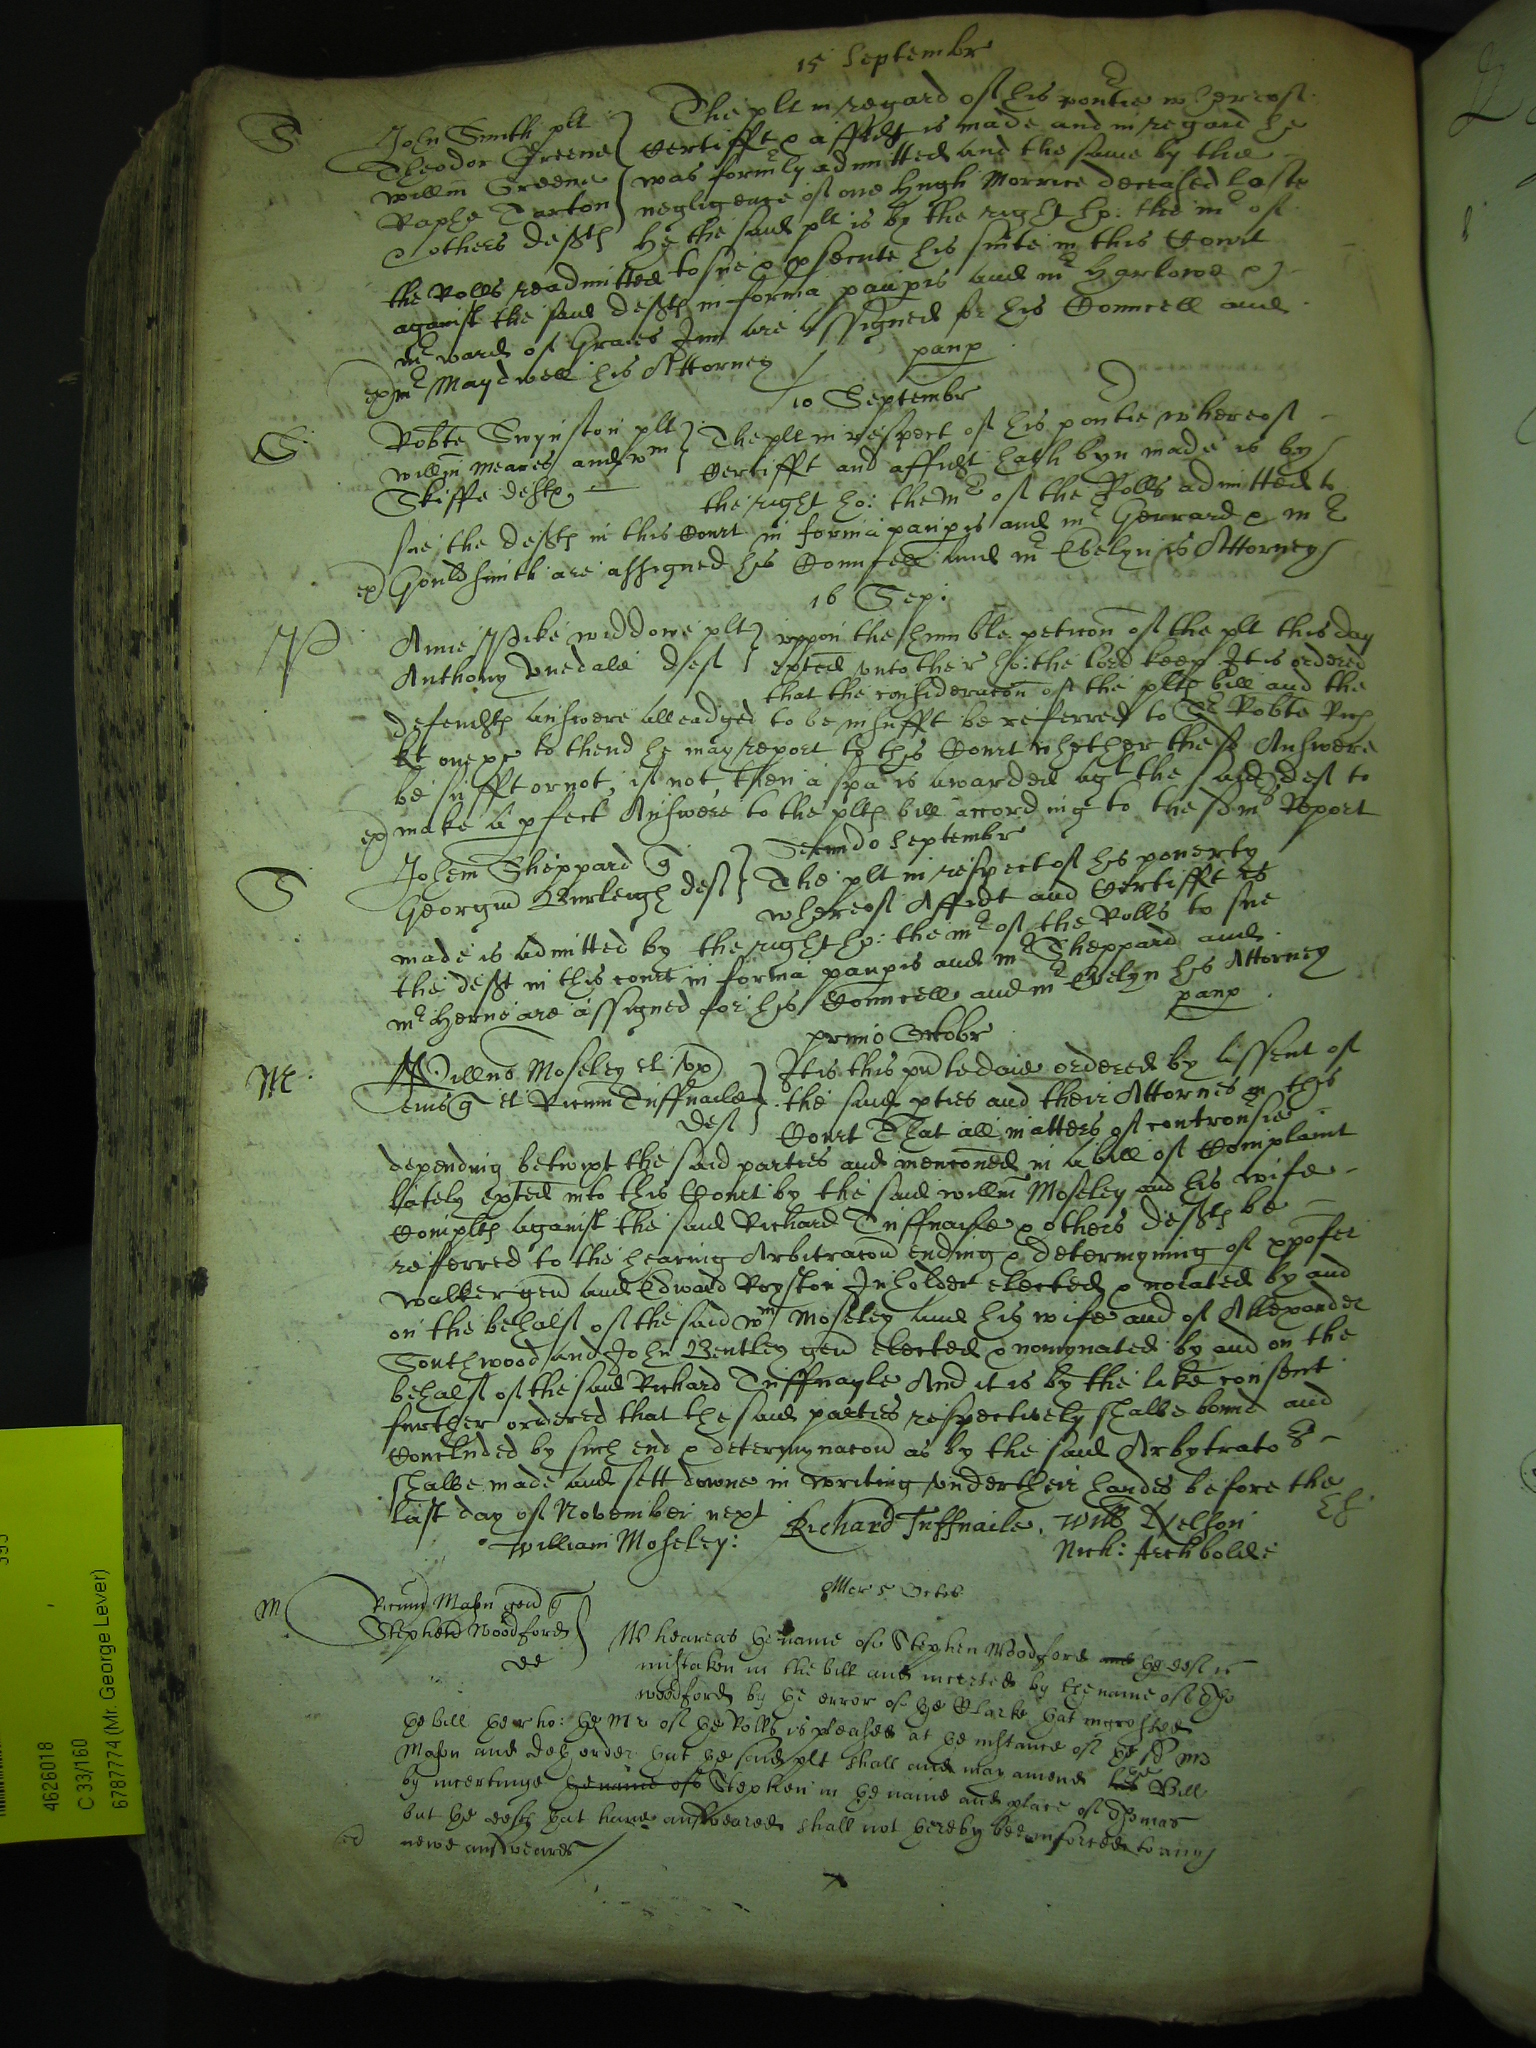 15 Septembr
S John Smith plt The plt in regard of his povtie whereof
Theodor Greene certifft & affidt is made and in regard he
Willm Greene was formly admitted and the same by the
Raphe Tarton negligence of one Hugh Morrice deceased loste
& others defts He the said plt is by the right ho: the mr of
the Rolls readmitted to sue & psecute his suite in this Court
against the said defts in forma paupis and mr Harlowe &
mr ward of Graies Inn are assigned for his Councell and
ex mr Maydwell his Attorney paup
10 Septembr
S Robte Swynston plt The plt in respect of his povtie whereof
willm meares and wm certifft and affidt hath byn made is by
Skiffe defts the right ho: the mr of the Rolls admitted to
sue the defts in this Court in forma paupis and mr Gerrard & mr
ex Gouldsmith are assigned his Councell and mr Evelyn is Attorney
16 Sep:
W Anne Wike widdowe plt uppon the humble peticon of the plt this day
Anthony Unedale deft exhited unto the r ho: the lord keep It is ordered
that the consideracon of the plts bill and the
defendts answere alleadged to be insufft be referred to Sr Robte Rich
kt one &c to thend he may report to this Court whether the sd Answere
be sufft or not, if not then a spa is awarded agt the said deft to
ex make a pfect Answere to the plts bill according to the sd mrs Report
Secundo Septembr
S Johem Sheppard q The plt in respect of his poverty
Georgiu Burleigh deft whereof Affidt and Certifft is
made is admitted by the right ho: the mr of the Rolls to sue
the deft in this court in forma paupis and mr Sheppard and
mr Herne are assigned for his Councell and mr Evelyn his Attorney
paup
primo Octobr
M Willms Moseley et ux It is this pnte daie ordered by assent of
eius q et Ricum Tuffnaile the said pties and their Attornes in this
deft Court That all matters of controvsie
depending betwixt the said parties and menconed in a bill of Complaint
lately exhited into this Court by the said willm Moseley and his wife
Complts against the said Richard Tuffnaile & others defts be
referred to the hearing Arbitracon ending & determyning of xpofer
Walker gen and Edward Royston Inholder elected & noiated by and
on the behalf of the said wm Moseley and his wife and of Allexander
Southwood and John Bentley gen elected & nomynated by and on the
behalf of the said Richard Tuffnayle And it is by the like consent
further ordered that the said parties respectively shalbe bound and
Concluded by such end & determynacon as by the said Arbytrators
shalbe made and sett downe in writing under their handes before the
last day of November next
Richard Tuffnaile. Will Nelson
William Moseley: Nich: Archbolde
Mer 5 Octis
M Ricum Mason gen q
Stephen Woodford Wheareas the name of Stephen Woodford and the deft is
de mistaken in the bill and incerted by the name of Tho
Woodford by the error of the Clarke that ingrossed
the bill the r ho: the Mr of the Rolls is pleased at the instance of the sd mr
Mason and doth order that the said plt shall and may amend his the Bill
by incertinge the name of Stephen in the name and place of Thomas
but the defts that have answeared shall not hereby bee inforced to any
ex newe answeare
4626018
C 33/160
6787774 (Mr George Lever)